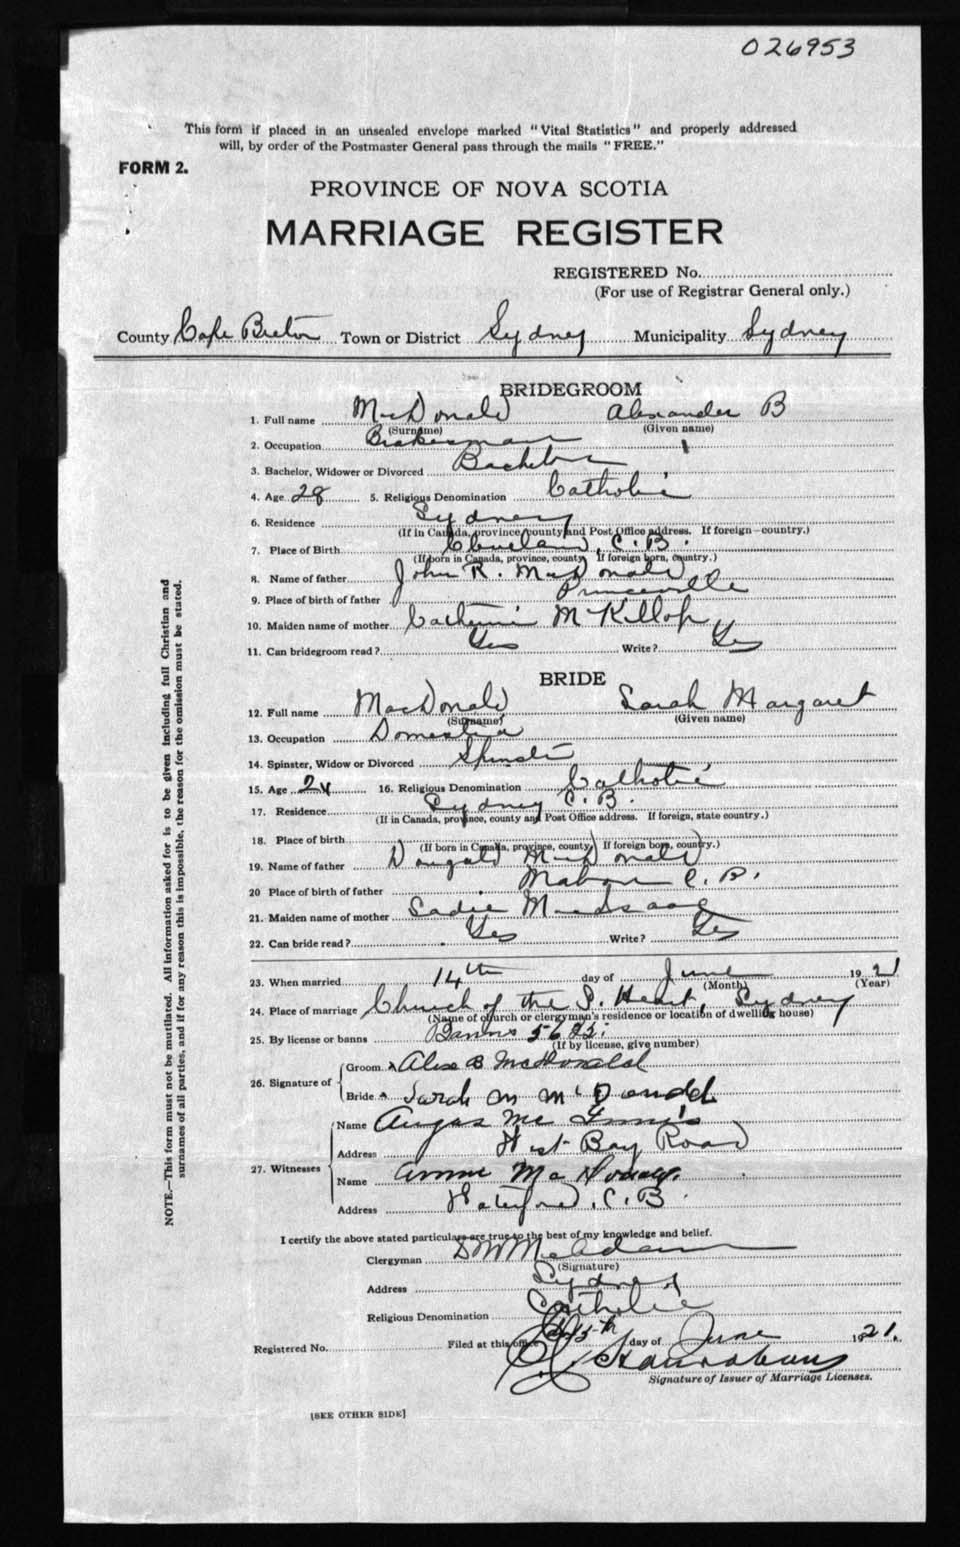 026953
This form if placed in an unsealed envelope marked "Vital Statistics" and properly addressed
will, by order of the Postmaster General pass through the mails "FREE."
FORM 2.
PROVINCE OF NOVA SCOTIA
MARRIAGE REGISTER
REGISTERED No.
(For use of Registrar General only.)
County Cape Breton Town or District Sydney Municipality Sydney
BRIDEGROOM
1. Full name MacDonald Alexander B
(Surname) (Given name)
2. Occupation Brakesman
3. Bachelor, Widower or Divorced Bachelor
4. Age 28 5. Religious Denomination Catholic
6. Residence Sydney
(If in Canada, province, county and Post Office address. If foreign—country.)
7. Place of Birth Cleveland, C. B.
(If born in Canada, province, county, If foreign born, country.)
8. Name of father John R. MacDonald
9. Place of birth of father Princeville
10. Maiden name of mother Catherine McKillop
11. Can bridegroom read? Yes Write? Yes
BRIDE
12. Full name MacDonald Sarah Margaret
(Surname) (Given name)
13. Occupation Domestic
14. Spinster, Widow or Divorced Spinster
15. Age 24 16. Religious Denomination Catholic
17. Residence Sydney C. B.
(If in Canada, province, county and Post Office address. If foreign, state country.)
18. Place of birth
(If born in Canada, province, county, If foreign born, country.)
19. Name of father Dougald MacDonald
20 Place of birth of father Mabou C. B.
21. Maiden name of mother Sadie MacIsaac
22. Can bride read? Yes Write? Yes
23. When married 14th day of June 1921
(Month) (Year)
24. Place of marriage Church of the S. Heart, Sydney
(Name of church or clergyman's residence or location of dwelling house)
25. By license or banns Banns
(If by license, give number)
26. Signature of
Groom x Alex B McDonald
Bride x Sarah M McDonald
27. Witnesses
Name Angus Mc Innis
Address West Bay Road
Name Annie
Address Waterford, C. B.
I certify the above stated particulars are true to the best of my knowledge and belief.
Clergyman MacAdam
(Signature)
Address Sydney
Religious Denomination Catholic
Registered No. Filed at this office 15th day of June 1921.
Signature of Issuer of Marriage Licenses.
[SEE OTHER SIDE]
NOTE.—This form must not be mutilated. All information asked for is to be given including full Christian and
surnames of all parties, and if for any reason this is impossible, the reason for the omission must be stated.